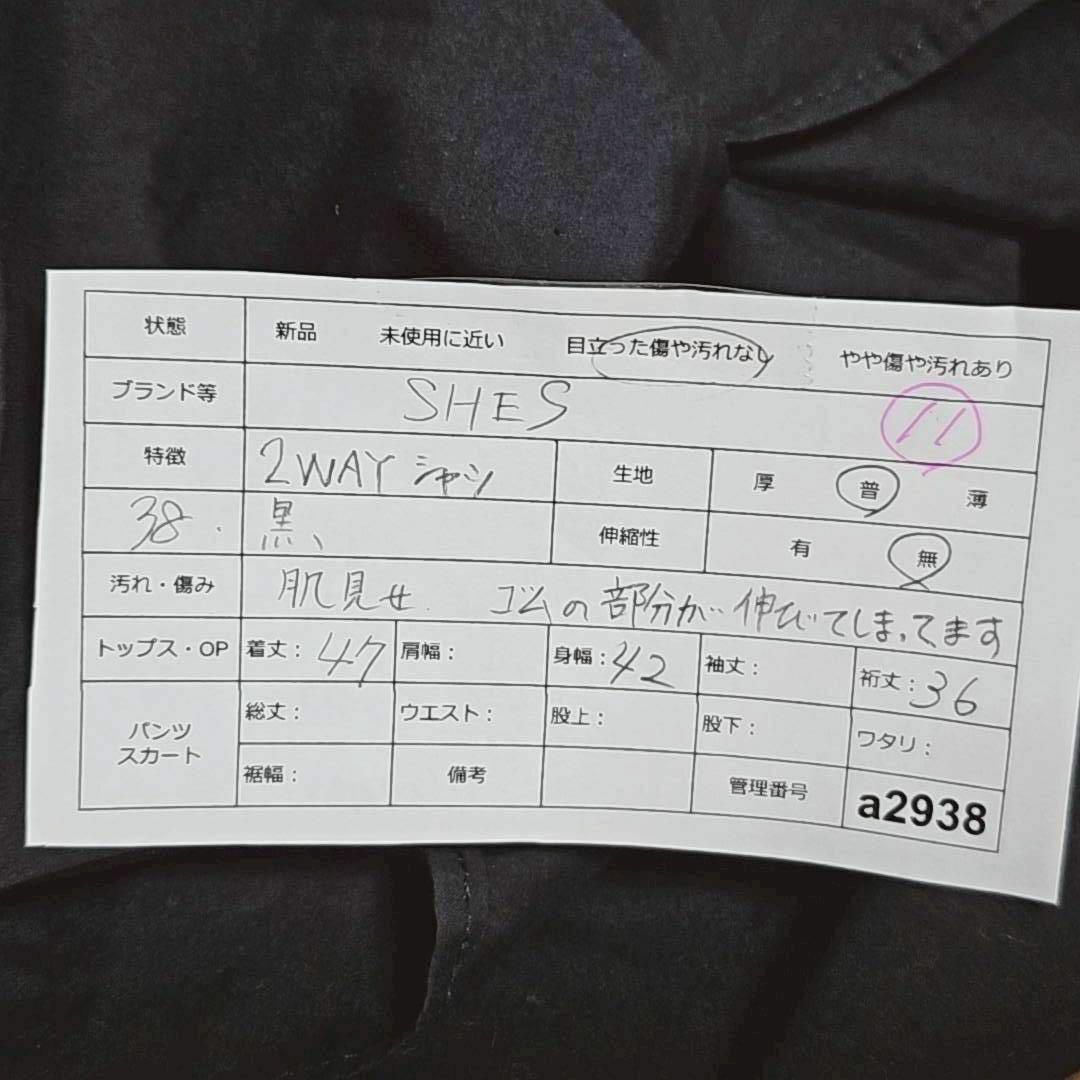 状態 新品 未使用に近い 目立った傷や汚れなし やや傷や汚れあり
ブランド等 SHES 11
特徴 2WAY シャツ 生地 厚 普 薄
38. 黒、 伸縮性 有 無
汚れ・傷み 肌見せ. ゴムの部分が伸びてしまってます
トップス・OP 着丈：47 肩幅： 身幅：42 袖丈： 裄丈：36
パンツ スカート 総丈： ウエスト： 股上： 股下： ワタリ：
裾幅： 備考 管理番号 a2938